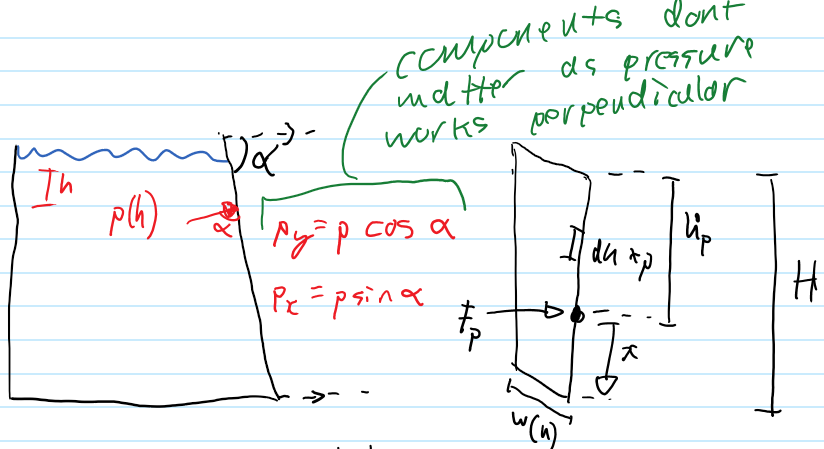 components dont
matter as pressure
works perpendicular
α
h
p(h)
α
py = p cos α
px = p sin α
hp
H
Fp
x
w(h)